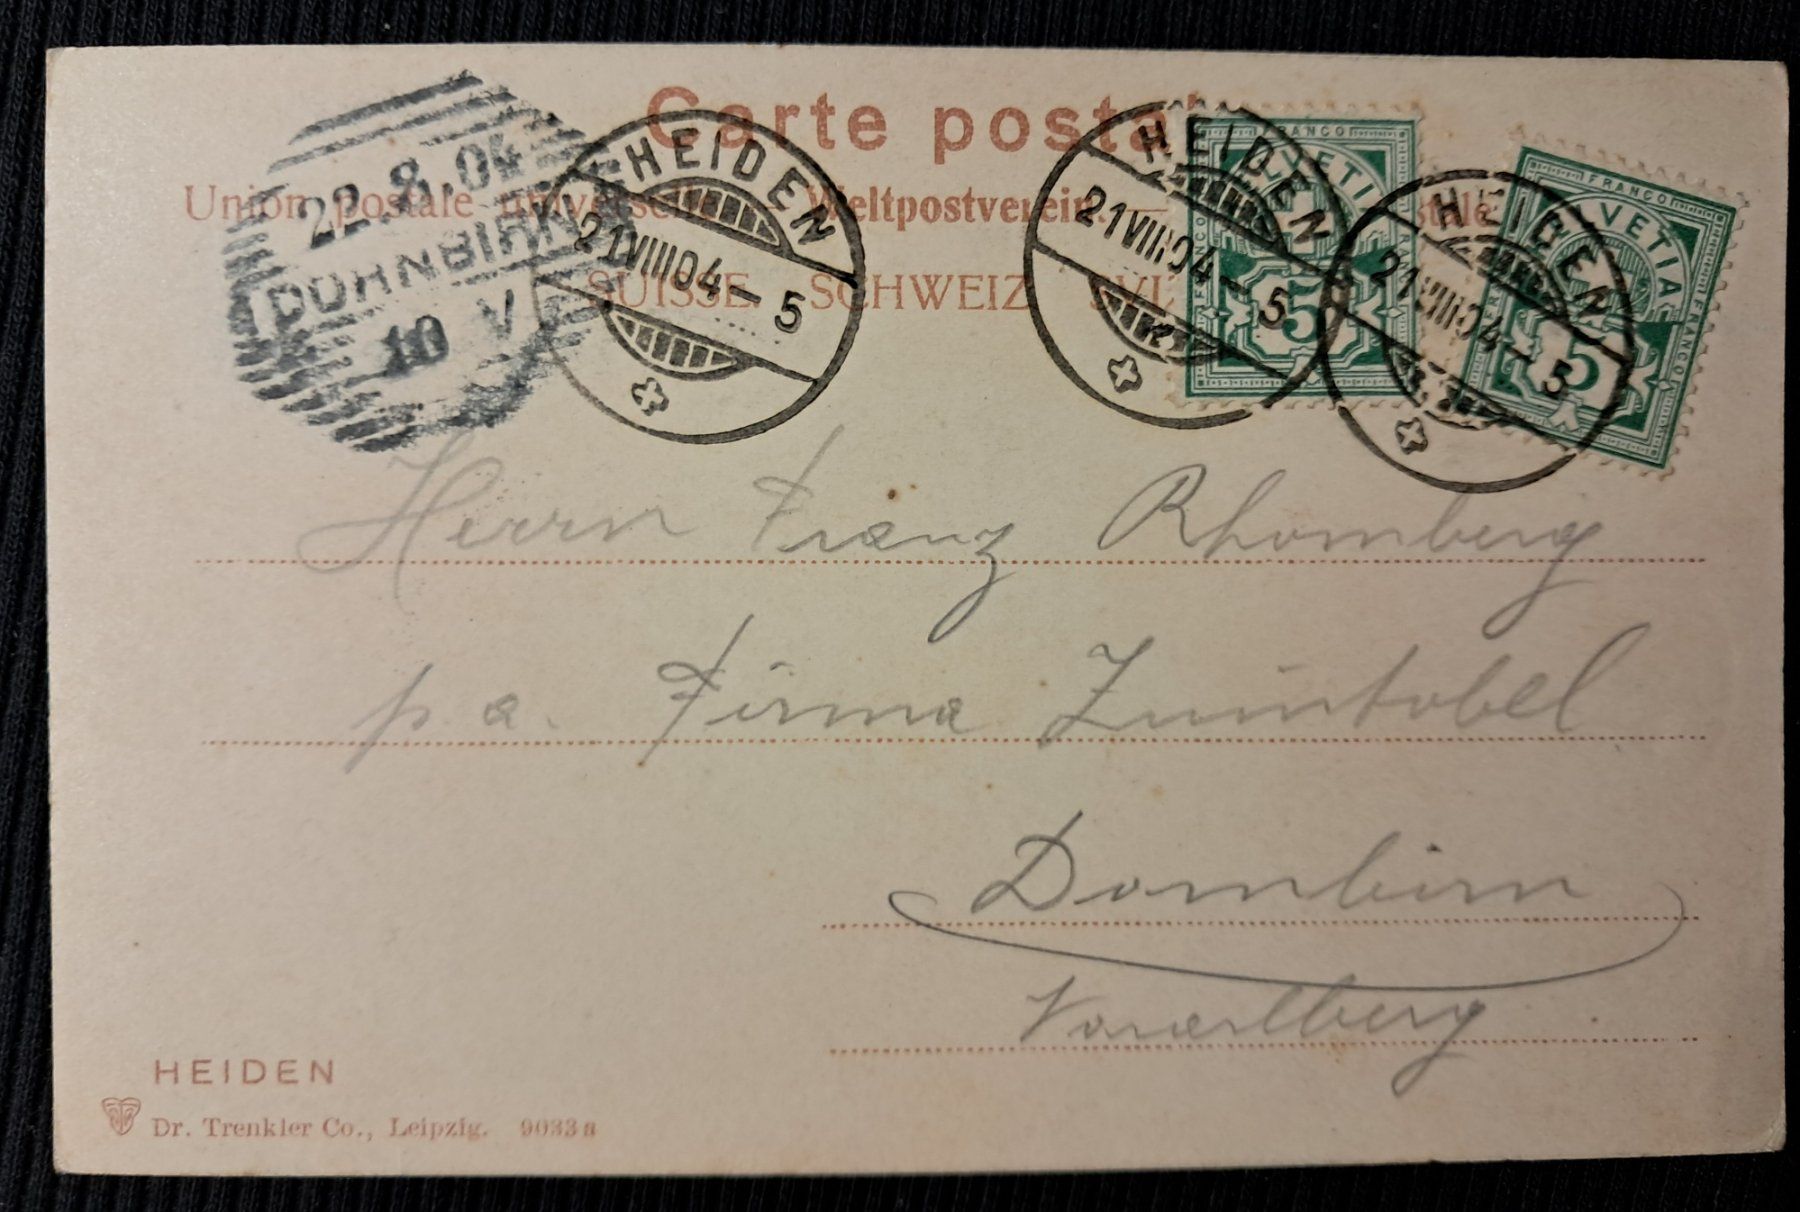 Carte postale
Union postale universelle. — Weltpostverein. —
SUISSE. SCHWEIZ.
22.8.04
DORNBIRN
10 V
HEIDEN
21 VIII 04 - 5
HEIDEN
21 VIII 04 - 5
HEIDEN
21 VIII 04 - 5
FRANCO
HELVETIA
FRANCO
FRANCO
5
FRANCO
HELVETIA
FRANCO
FRANCO
5
Herrn Franz Rhomberg
p. a. Firma Zumtobel
Dornbirn
Vorarlberg
HEIDEN
Dr. Trenkler Co., Leipzig. 9033a